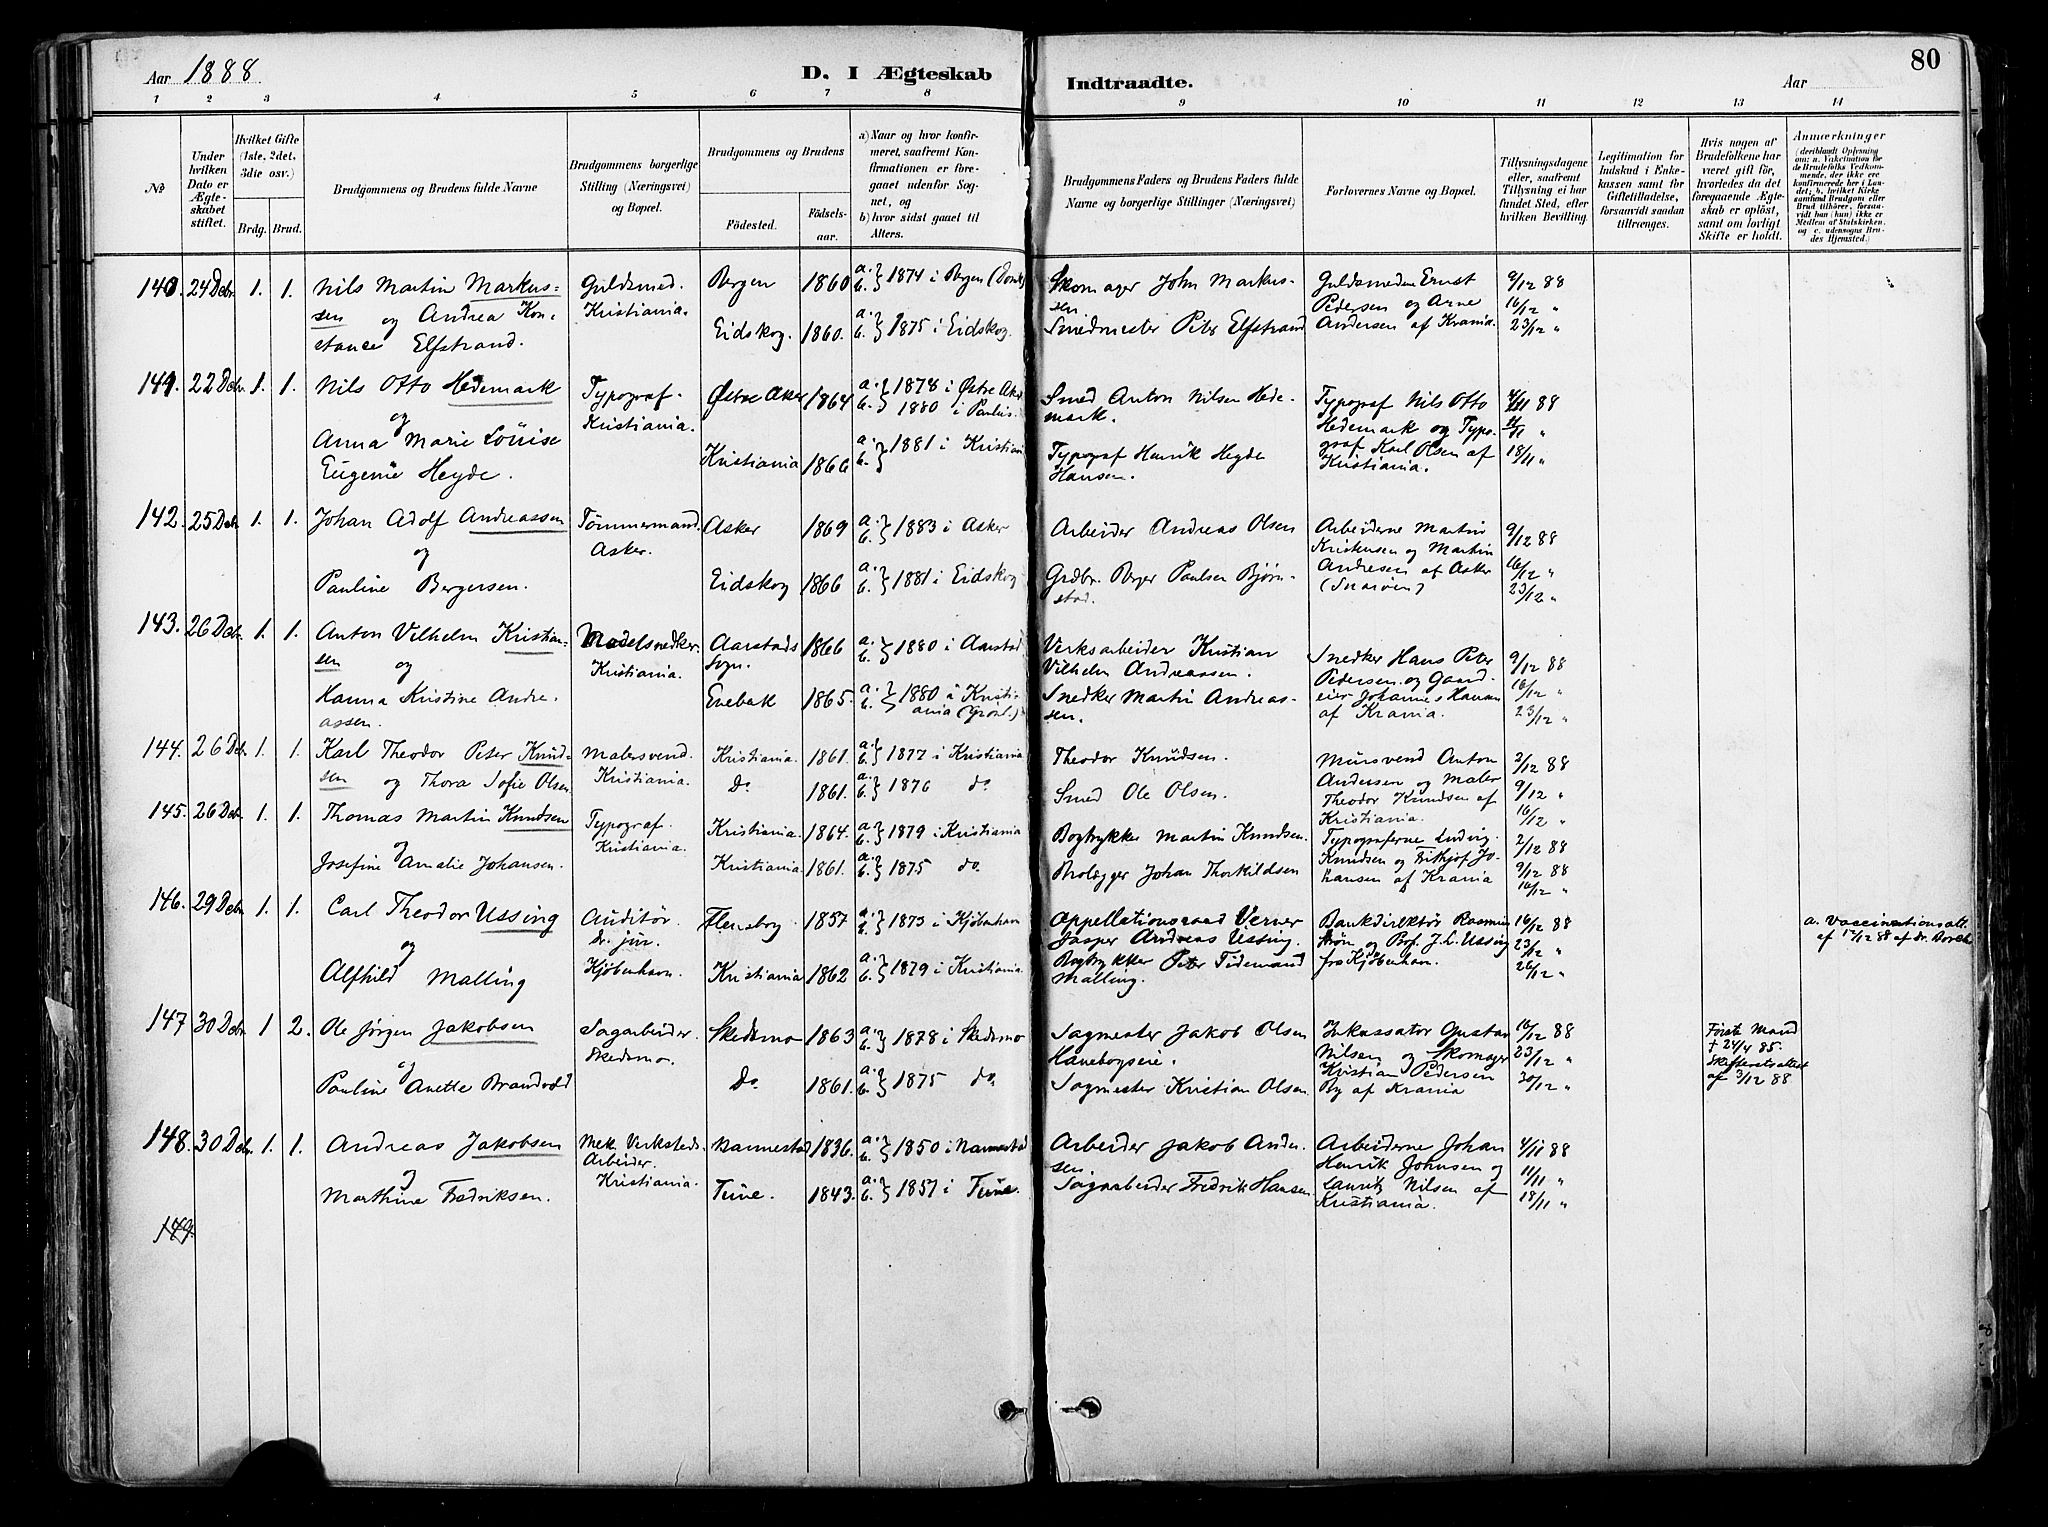 Aar 1888
D. I Ægteskab Indtraadte.
Aar
80
1 2 3 4 5 6 7 8 9 10 11 12 13 14
No
Under hvilken Dato er Ægteskabet stiftet.
Hvilket Gifte (1ste, 2det, 3die osv.)
Brdg. Brud.
Brudgommens og Brudens fulde Navne
Brudgommens borgerlige Stilling (Næringsvei) og Bopæl.
Brudgommens og Brudens
Födested.
Födselsaar.
a) Naar og hvor konfirmeret, saafremt Konfirmationen er foregaaet udenfor Sognet, og
b) hvor sidst gaaet til Alters.
Brudgommens Faders og Brudens Faders fulde Navne og borgerlige Stillinger (Næringsvei)
Forlovernes Navne og Bopæl.
Tillysningsdagene eller, saafremt Tillysning ei har fundet Sted, efter hvilken Bevilling.
Legitimation for Indskud i Enkekassen samt for Giftetilladelse, forsaavidt saadan tiltrænges.
Hvis nogen af Brudefolkene har været gift før, hvorledes da det foregaaende Ægteskab er opløst, samt om lovligt Skifte er holdt.
Anmærkninger (deriblandt Oplysning om: a. Vakcination for de Brudefolks Vedkommende, der ikke ere konfirmerede her i Landet; b. hvilket Kirkesamfund Brudgom eller Brud tilhører, forsaavidt han (hun) ikke er Medlem af Statskirken, og c. udensogns Brudes Hjemsted.)
140. 24 Debr. 1. 1. Nils Martin Markus- Guldsmed. Bergen 1860 a. b. } 1874 i Bergen (Domk.) Skomager John Markus- Guldsmedene Ernst 9/12 88
sen og Andrea Kon- Kristiania. sen. Pedersen og Arne 16/12 "
stance Elfstrand. Eidskog. 1860. a. b. } 1875 i Eidskog. Smedmester Peter Elfstrand Andersen af Krania. 23/12 "
141. 22 Debr. 1. 1. Nils Otto Hedemark Typograf. Østre Aker 1864 a. b. } 1878 i Østre Aker Smed Anton Nilsen Hede- Typograf Nils Otto 4/11 88
og Kristiania. 1880 i Paulus. mark. Hedemark og Typo- 11/11 "
Anna Marie Louise Kristiania 1866 a. b. } 1881 i Kristiania Typograf Henrik Heyde graf Karl Olsen af 18/11 "
Eugenie Heyde. Hansen. Kristiania.
142. 25 Debr. 1. 1. Johan Adolf Andreassen Tømmermand. Asker 1869 a. b. } 1883 i Asker Arbeider Andreas Olsen Arbeiderne Martin 9/12 88
og Asker. Kristensen og Martin
Pauline Bergersen. Eidskog 1866 a. b. } 1881 i Eidskog Grdbr. Berger Paulsen Bjørn- Andresen af Asker 16/12 "
stad. (Snarøen) 23/12 "
143. 26 Debr. 1. 1. Anton Vilhelm Kristian- Modelsnedker. Aarstads 1866 a. b. } 1880 i Aarstad Verksarbeider Kristian Snedker Hans Peter 9/12 88
sen og Kristiania. Sogn. Vilhelm Andreassen. Pedersen og Gaard-
Hanna Kristine Andre- Enebak 1865. a. b. } 1880 i Kristi- Snedker Martin Andreas- eier Johannes Hansen 16/12 "
assen. ania (Grønl.) sen. af Krania. 23/12 "
144. 26 Debr. 1. 1. Karl Theodor Peter Knud- Malersvend. Kristiania. 1861. a. b. } 1877 i Kristiania Theodor Knudsen. Mursvend Anton 2/12 88
sen og Thora Sofie Olsen. Kristiania. Do 1861. a. b. } 1876 do. Smed Ole Olsen. Andersen og Maler 9/12 "
Theodor Knudsen af 16/12 "
Kristiania.
145. 26 Debr. 1. 1. Thomas Martin Knudsen Typograf. Kristiania. 1864. a. b. } 1879 i Kristiania Bogtrykker Martin Knudsen. Typograferne Ludvig 2/12 88
og Kristiania. Knudsen og Frithjof Jo- 9/12 88
Josefine Amalie Johansen. Kristiania 1861. a. b. } 1875 do. Brolægger Johan Thorkildsen hansen af Krania 16/12 "
146. 29 Debr. 1. 1. Carl Theodor Ussing Auditør. Flensborg 1857 a. b. } 1873 i Kjøbenhavn Appellationsraad Verner Bankdirektør Rasmus 16/12 88 a. Vaccinationsatt.
og dr. jur. Jasper Andreas Ussing. Strøm og Prof. J. L. Ussing 23/12 " af 17/12 88 af dr. Borch
Alfhild Malling Kjøbenhavn. Kristiania 1862 a. b. } 1879 i Kristiania Bogtrykker Peter Tidemand fra Kjøbenhavn. 26/12 "
Malling.
147 30 Debr. 1 2. Ole Jørgen Jakobsen Sagarbeider. Skedsmo 1863 a. b. } 1878 i Skedsmo Sagmester Jakob Olsen Inkassator Gustav 16/12 88 Første Mand
og Skedsmo. Haneborgseie. Nilsen og Skomager 23/12 " † 24/4 85.
Pauline Anette Brandvold Do. 1861. a. b. } 1875 do. Sagmester Kristian Olsen. Kristian Pedersen 30/12 " Skifteretsattest
By af Krania af 3/12 88
148. 30 Debr. 1. 1. Andreas Jakobsen Mek. Verksteds- Nannestad 1836. a. b. } 1850 i Nannestad Arbeider Jakob Ander- Arbeiderne Johan 4/11 88
og Arbeider. sen. Henrik Johnsen og 11/11 "
Marthine Fredriksen. Kristiania. Tune. 1843. a. b. } 1857 i Tune. Sagarbeider Fredrik Hansen. Lauritz Nilsen af 18/11 "
Kristiania.
149.